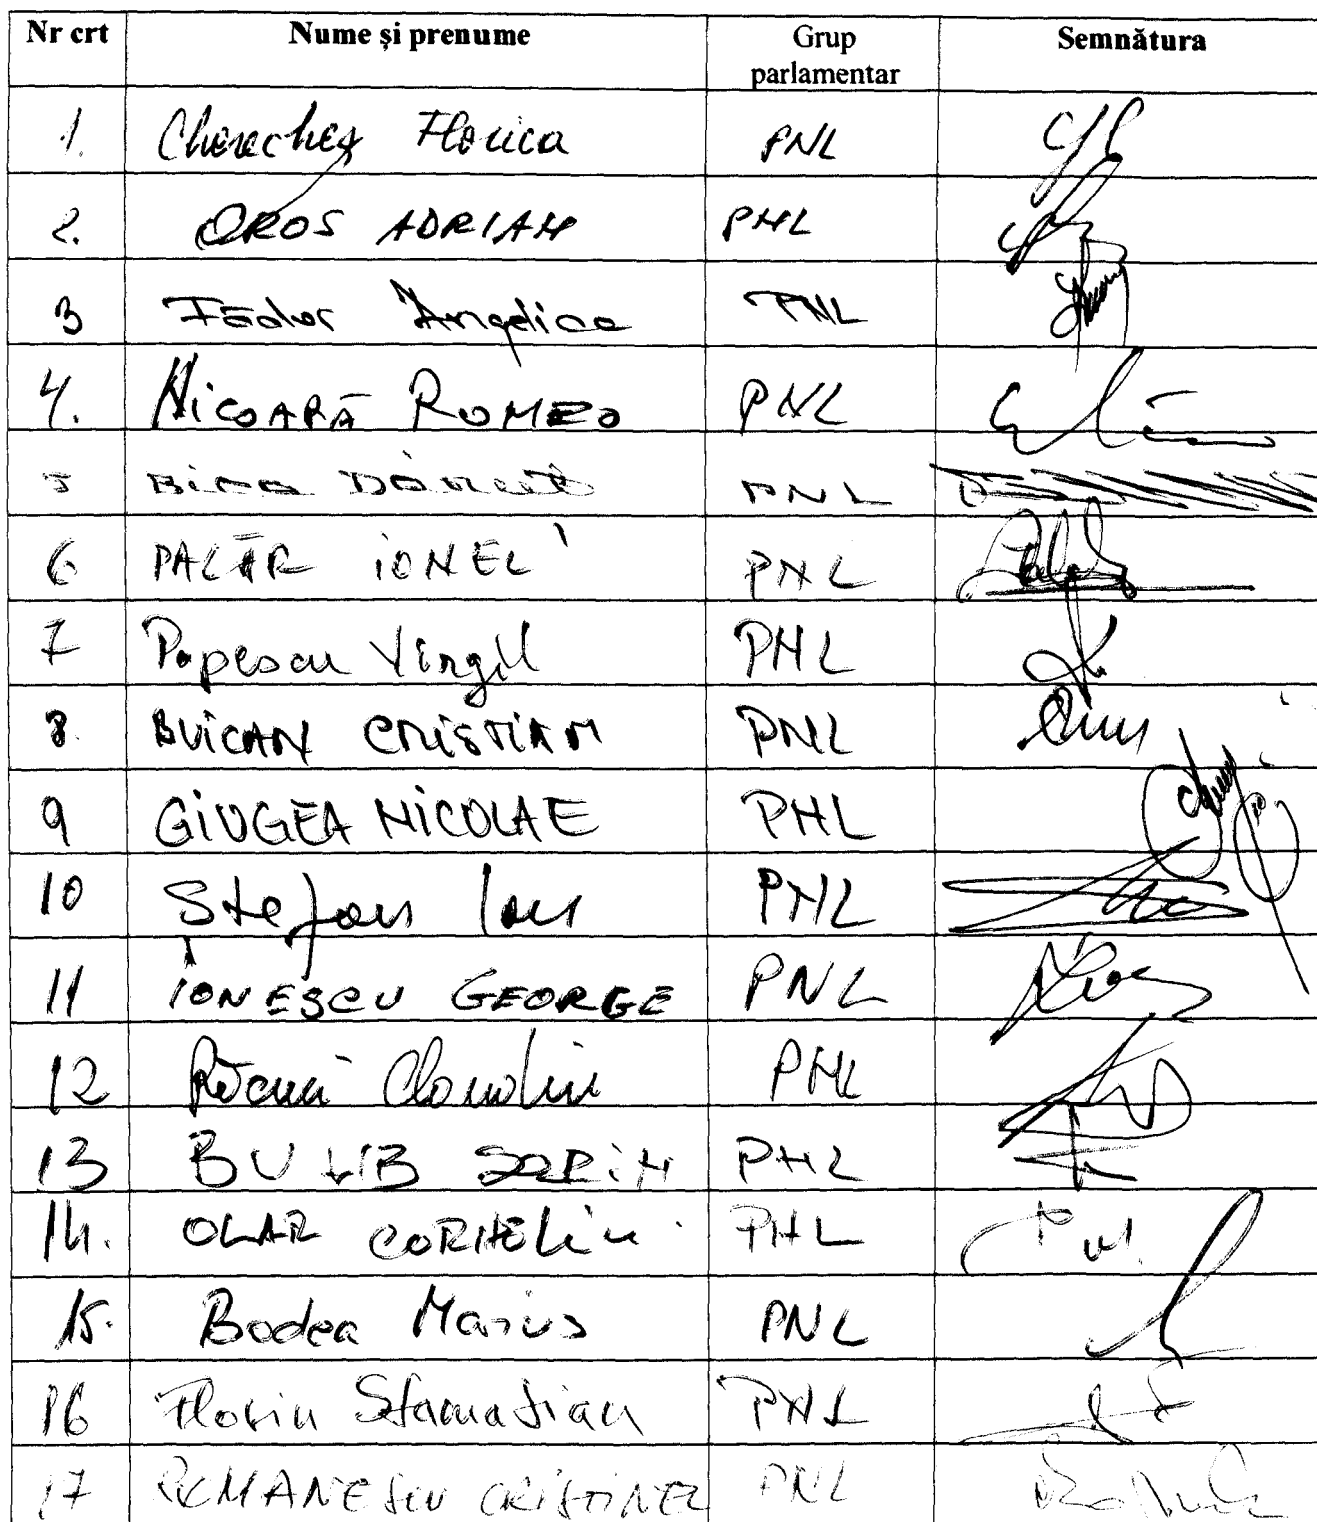 Nr crt Nume și prenume Grup parlamentar Semnătura
1. Cherecheș Florica PNL
2. OROS ADRIAN PNL
3 Fădor Angelica PNL
4. NICOARĂ ROMEO PNL
5 PNL
6 PALĂR IONEL PNL
7 Popescu Virgil PNL
8. BUICAN CRISTIAN PNL
9 GIUGEA NICOLAE PNL
10 Stefan Ion PNL
11 IONESCU GEORGE PNL
12 Răcuci Claudiu PNL
13 BUMB SORIN PNL
14. OLAR CORNELIU PNL
15. Bodea Marius PNL
16 Florin Stamatian PNL
17 ROMANESCU CRISTINEL PNL